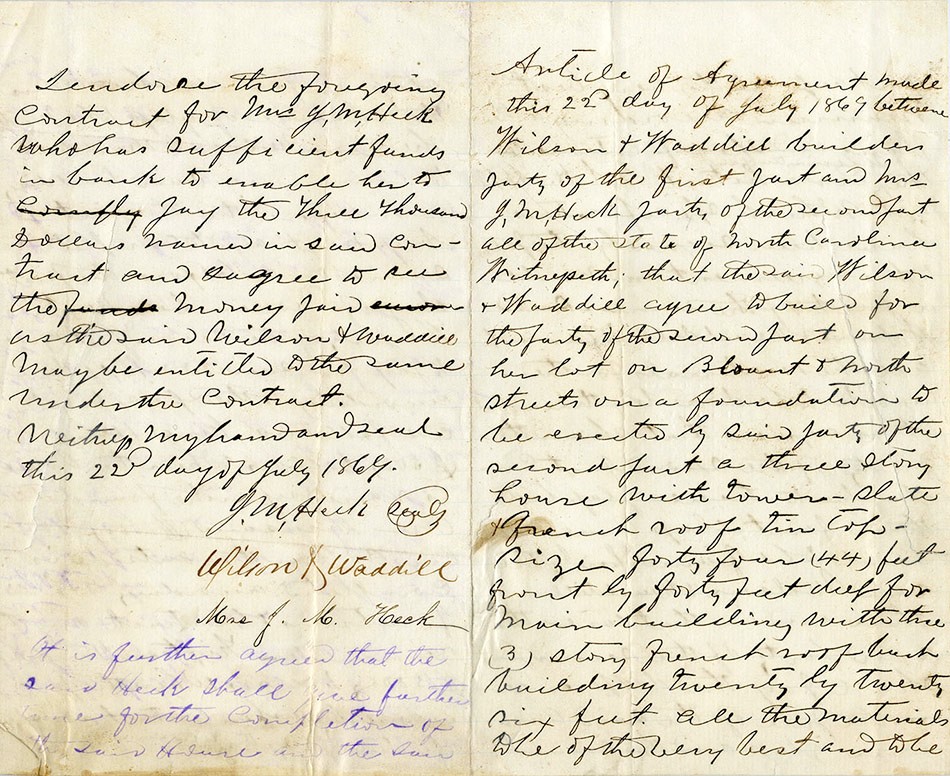 I endorse the foregoing
Contract for Mrs J, M, Heck
who has sufficient funds
in bank to enable her to
Comply pay the Three Thousand
Dollars named in said Con-
tract and agree to see
the funds money paid
as the said Wilson & Waddill
may be entitled to the same
under the Contract.
Witness my hand and seal
this 22d day of July 1869.
J, M, Heck Seal
Wilson & Waddill
Mrs J. M. Heck
It is further agreed that the
said Heck shall give further
time for the Completion of
the said House and the said
Article of Agreement made
this 22d day of July 1869 between
Wilson & Waddill builders
party of the first part and Mrs
J, M, Heck party of the second part
all of the State of North Carolina
Witnesseth; that the said Wilson
& Waddill agree to build for
the party of the second part on
her lot on Blount & North
streets on a foundation to
be erected by said party of the
second part a three story
house with tower - slate
& French roof tin top -
size forty four (44) feet
front by forty feet deep for
main building with three
(3) story French roof back
building twenty by twenty
six feet. All the materials
to be of the very best and to be